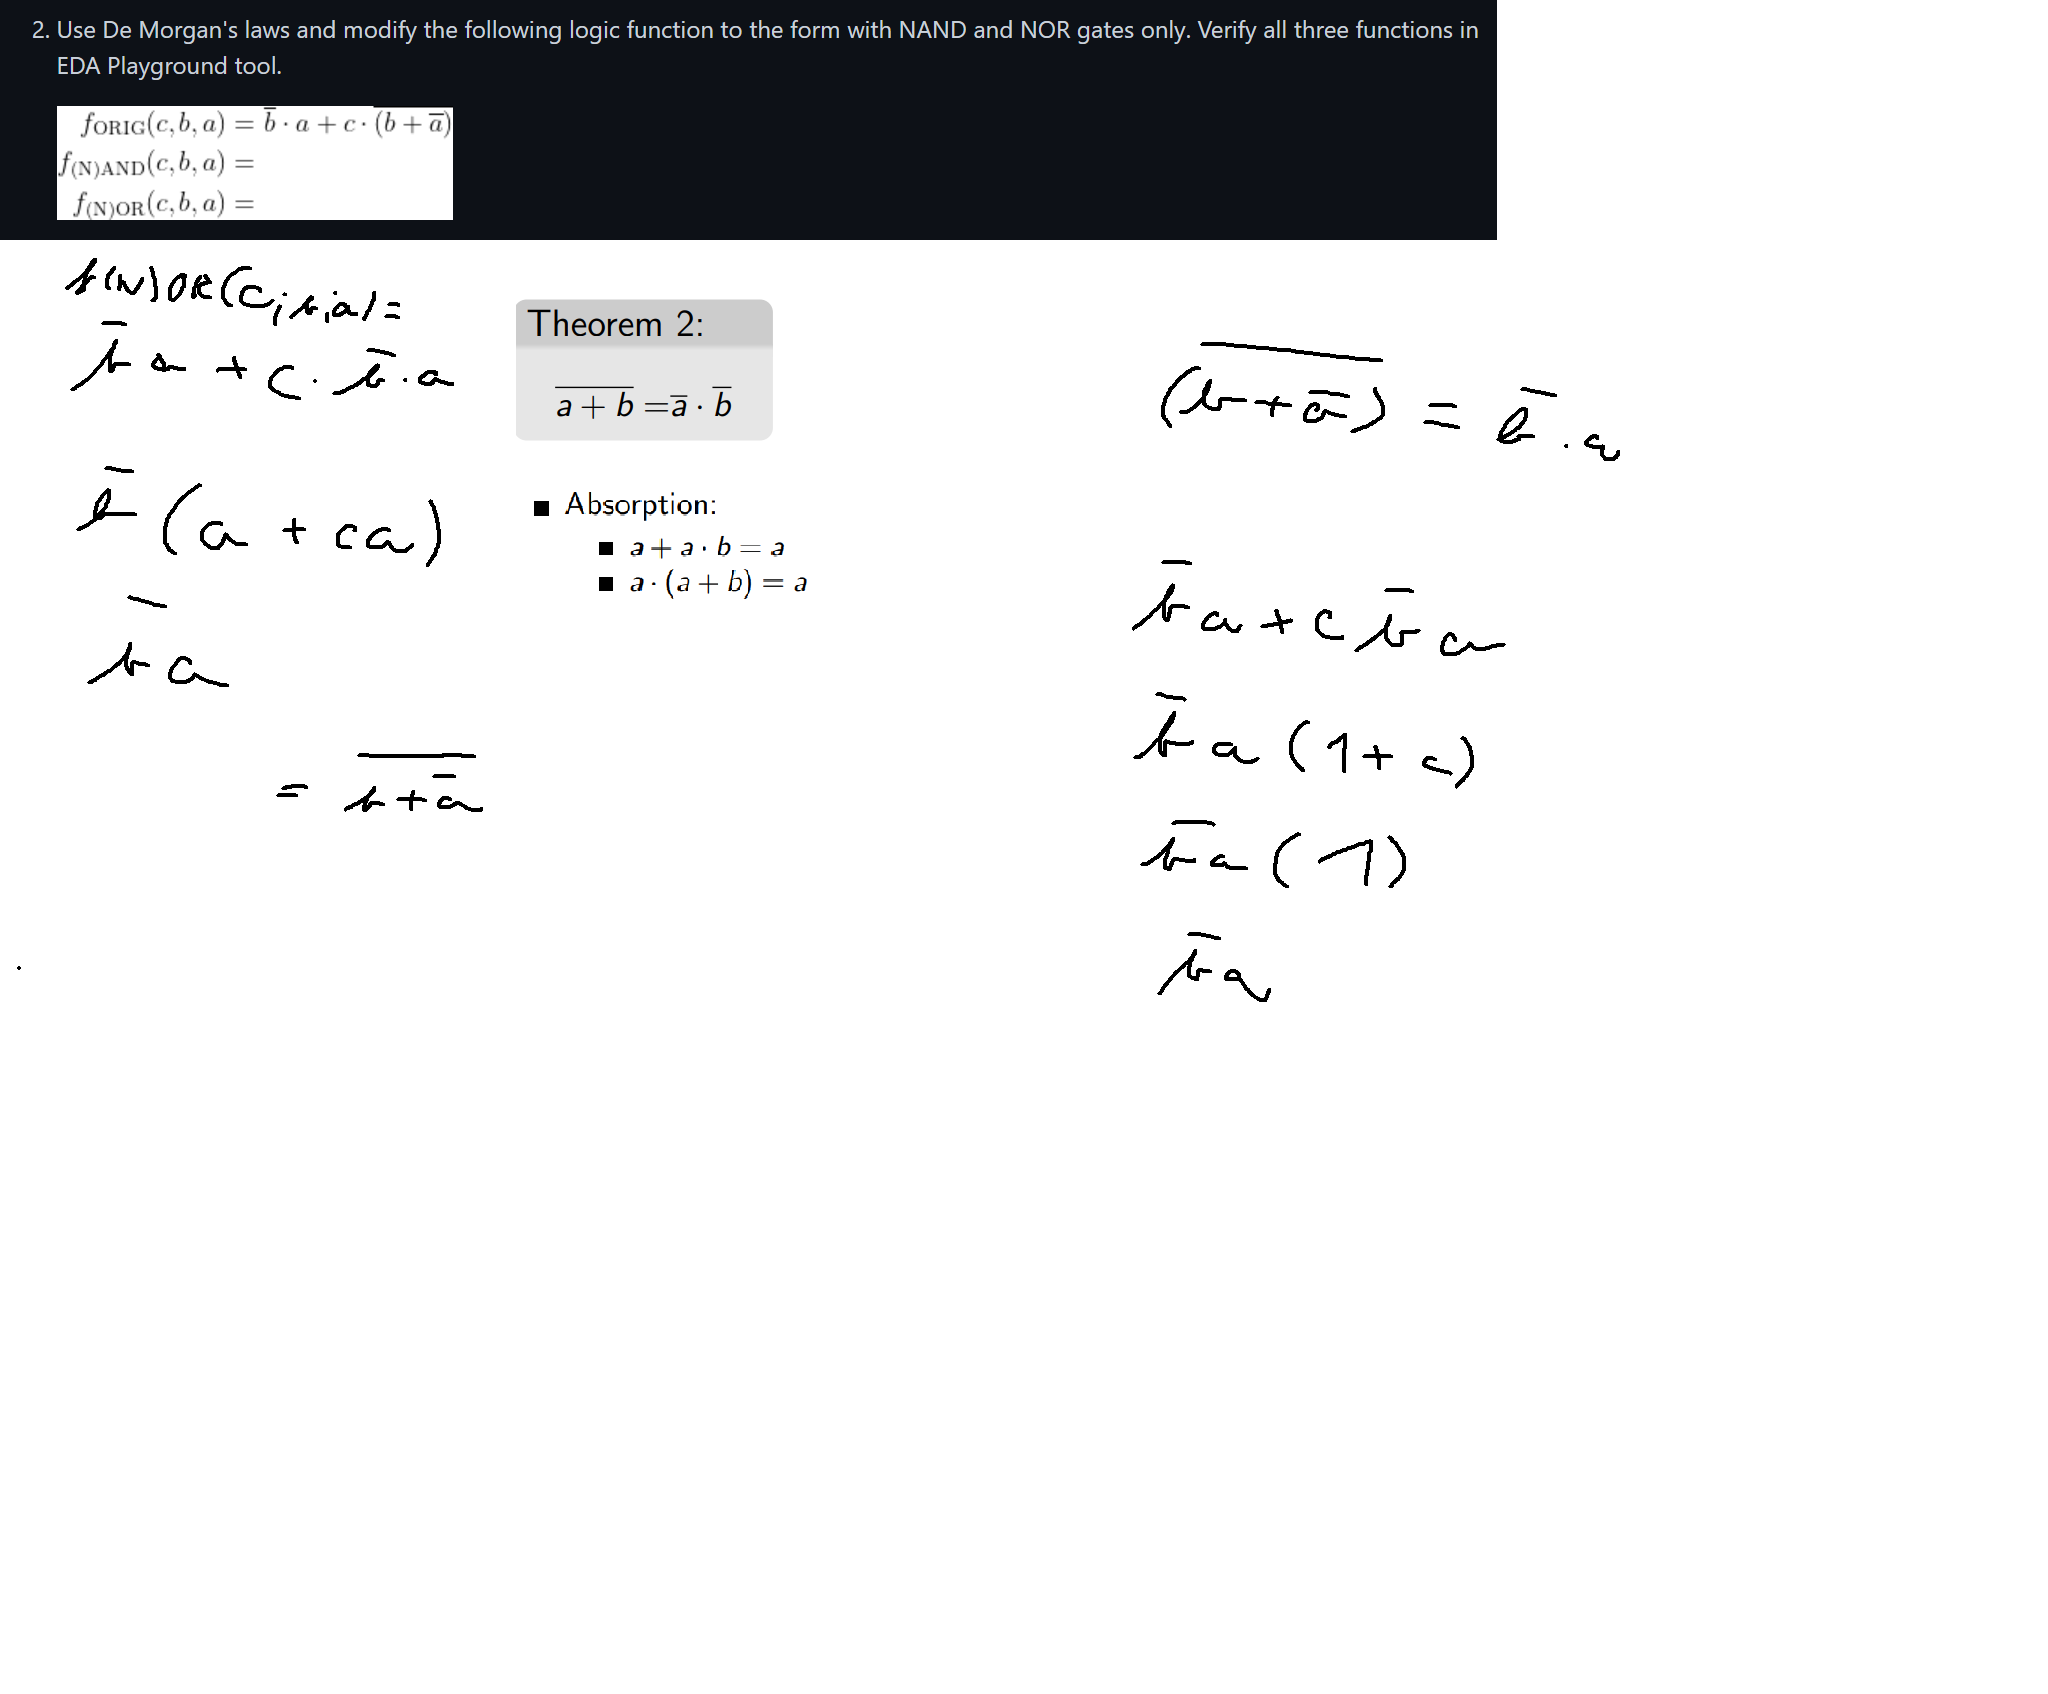 2. Use De Morgan's laws and modify the following logic function to the form with NAND and NOR gates only. Verify all three functions in
EDA Playground tool.
f_ORIG(c, b, a) = b̅ · a + c · \overline{(b + a̅)}
f_(N)AND(c, b, a) =
f_(N)OR(c, b, a) =
f(N)OR(c,b,a)=
b̅ a + c · b̅ · a
b̅ (a + ca)
b̅ a
= \overline{b + a̅}
Theorem 2:
\overline{a + b} = a̅ · b̅
■ Absorption:
■ a + a · b = a
■ a · (a + b) = a
\overline{(b + a̅)} = b̅ . a
b̅ a + c b̅ a
b̅ a (1 + c)
b̅ a (1)
b̅ a